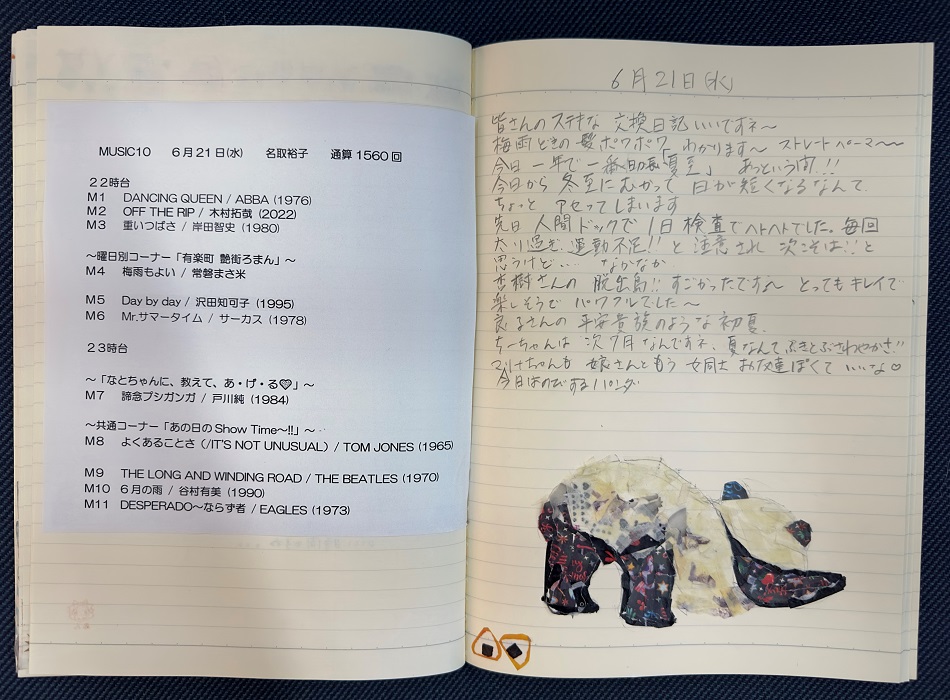 MUSIC10 6月21日(水) 名取裕子 通算1560回
22時台
M1 DANCING QUEEN / ABBA (1976)
M2 OFF THE RIP / 木村拓哉 (2022)
M3 重いつばさ / 岸田智史 (1980)
～曜日別コーナー「有楽町 艶街ろまん」～
M4 梅雨もよい / 常磐まさ米
M5 Day by day / 沢田知可子 (1995)
M6 Mr.サマータイム / サーカス (1978)
23時台
～「なとちゃんに、教えて、あ・げ・る♡」～
M7 諦念プシガンガ / 戸川純 (1984)
～共通コーナー「あの日のShow Time～!!」～
M8 よくあることさ (/IT'S NOT UNUSUAL) / TOM JONES (1965)
M9 THE LONG AND WINDING ROAD / THE BEATLES (1970)
M10 6月の雨 / 谷村有美 (1990)
M11 DESPERADO～ならず者 / EAGLES (1973)
6月21日(水)
皆さんのステキな 交換日記 いいですネ～
梅雨どきの髪 ポワポワ わかります～ ストレートパーマ～～
今日 一年で一番 長「夏至」 あっという間!!
今日から 冬至にむかって 日が短くなるなんて
ちょっと アセってしまいます
先日 人間ドックで 1日 検査でヘトヘトでした。毎回
太り過ぎ、運動不足!! と 注意され 次こそは!! と
思うけど… なかなか
杏樹さんの 脱出島!! すごかったですね～ とってもキレイで
楽しそうで パワフルでした～
良るさんの 平安貴族のような 初夏
ちーちゃんは 次7月なんですネ、夏なんてふきとぶさわやかさ!!
ちゃんも 娘さんともう 女同士 お友達ぽくて いいな♡
今日は するパンダ